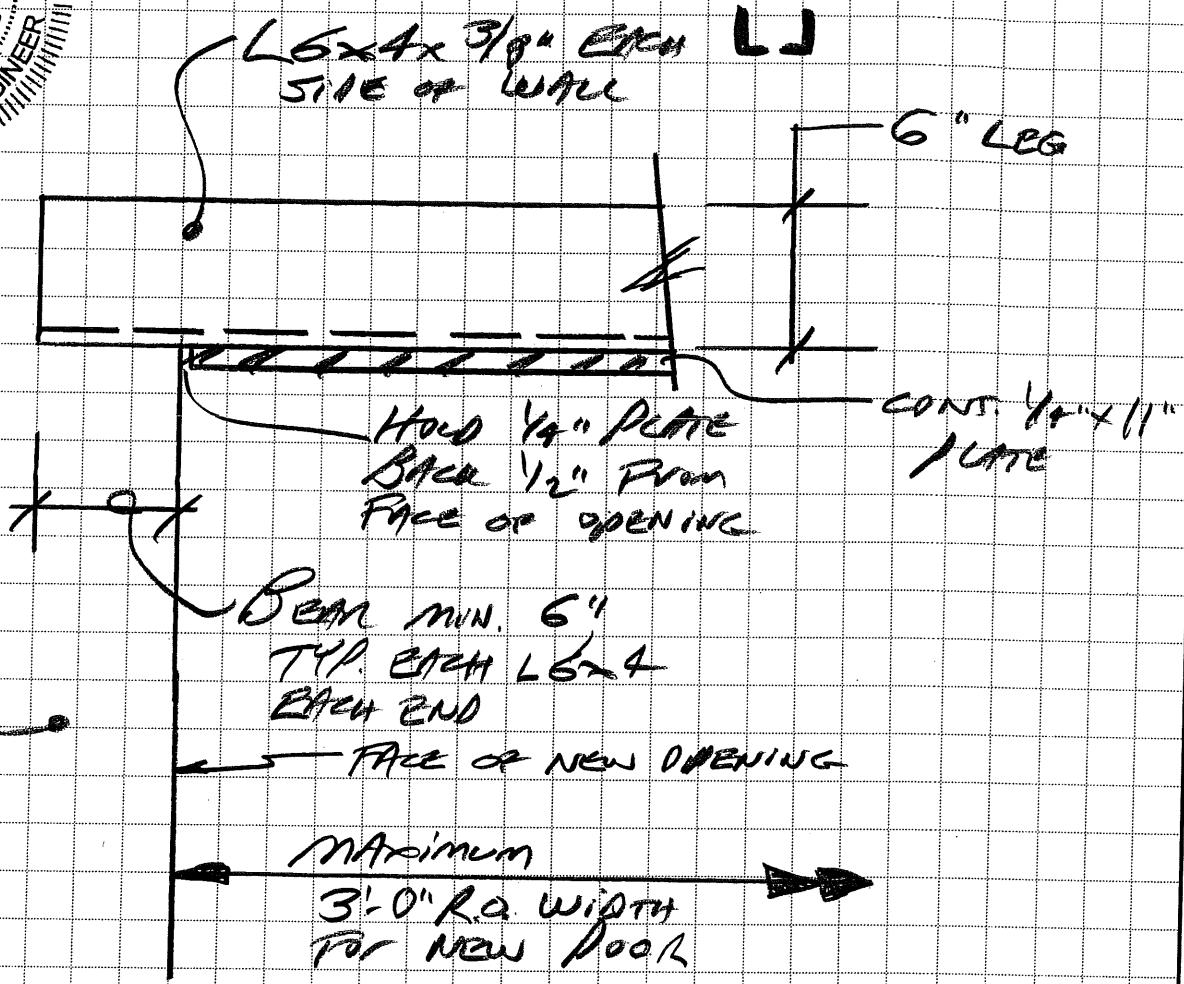 INEER
L6x4x 3/8" EACH
SIDE OF WALL
6" LEG
CONT. 1/4"x11"
PLATE
HOLD 1/4" PLATE
BACK 1/2" FROM
FACE OF OPENING
BEAR MIN. 6"
TYP. EACH L6x4
EACH END
FACE OF NEW OPENING
MAXIMUM
3'-0" R.O. WIDTH
FOR NEW DOOR